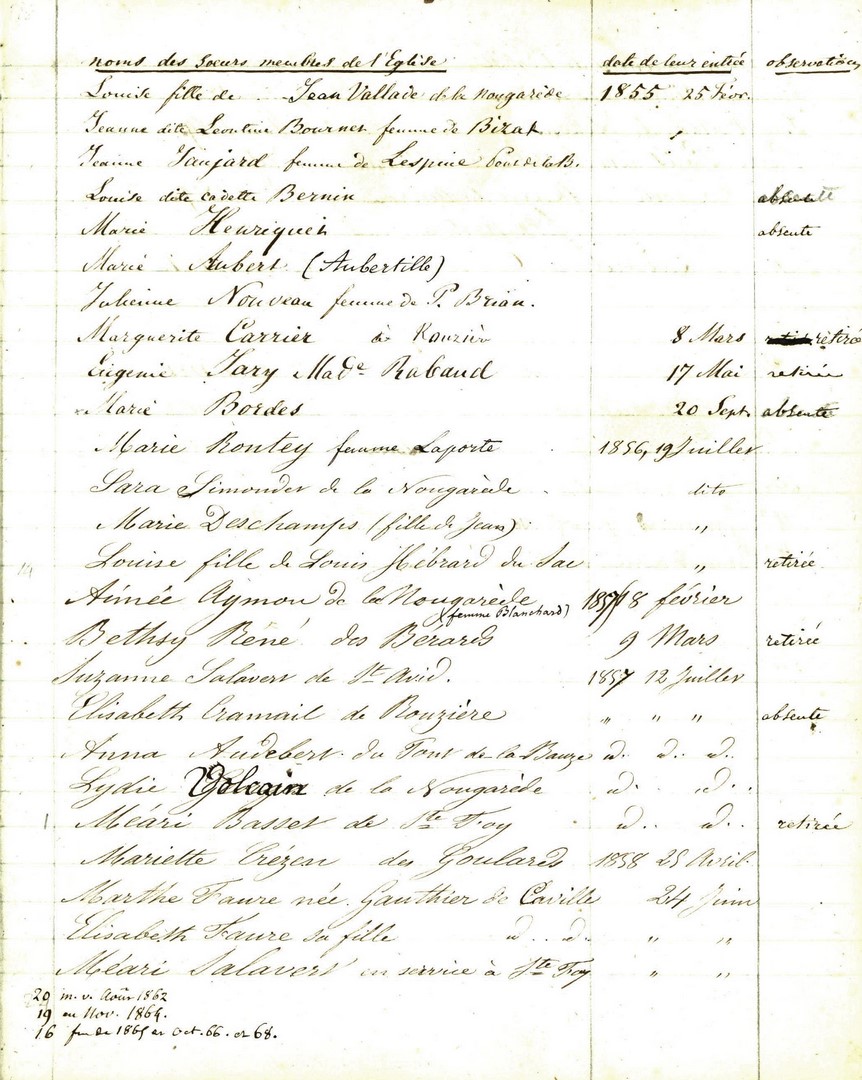 noms des Sœurs membres de l'Eglise date de leur entrée observations
Louise fille de Jean Vallade de la Nougarède 1855 25 févr.
Jeanne dite Leontine Bournet femme de Bizat
Jeanne Jaujard femme de Lespine Pont de la B.
Louise dite cadette Bernin absente
Marie Henriquet absente
Marie Aubert (Aubertille)
Julienne Nouveau femme de P. Brian.
Marguerite Carrier de Rouzièr 8 Mars retirée
Eugenie Jary Made Rabaud 17 Mai retirée
Marie Bordes 20 Sept. absente
Marie Rontey femme Laporte 1856, 19 Juillet
Sara Simondet de la Nougarède dito
Marie Deschamps (fille de Jean) "
Louise fille de Louis Hébrard du Sac " retirée
Aimée Aymon de la Nougarède 1857 18 février
(femme Blanchard)
Bethsy René des Berards 9 Mars retirée
Suzanne Salavert de St Avid. 1857 12 Juillet
Elisabeth Cramail de Rouzière " " " absente
Anna Audebert du Pont de la Bauze d. d. d.
Lydie de la Nougarède d. d.
Méari Basset de Ste Foy d. d. retirée
Mariette Crézen des Goulards 1858 25 Avril
Marthe Faure née Gauthier de Caville 24 Juin
Elisabeth Faure sa fille d. d. " "
Méari Salavert en service à Ste Foy " "
20 m. v. Août 1862
19 en Nov. 1864.
16 fin de 1865 et oct. 66. et 68.